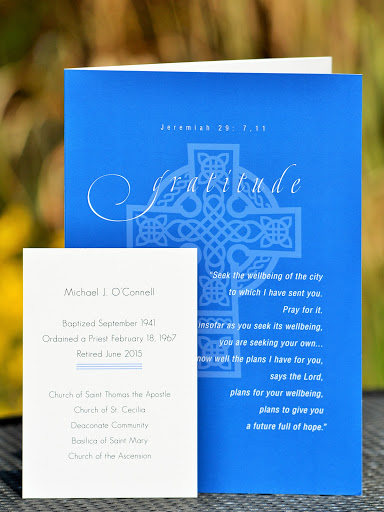 Jeremiah 29: 7,11
gratitude
"Seek the wellbeing of the city
to which I have sent you.
Pray for it.
insofar as you seek its wellbeing,
you are seeking your own...
now well the plans I have for you,
says the Lord,
plans for your wellbeing,
plans to give you
a future full of hope."
Michael J. O'Connell
Baptized September 1941
Ordained a Priest February 18, 1967
Retired June 2015
Church of Saint Thomas the Apostle
Church of St. Cecilia
Deaconate Community
Basilica of Saint Mary
Church of the Ascension